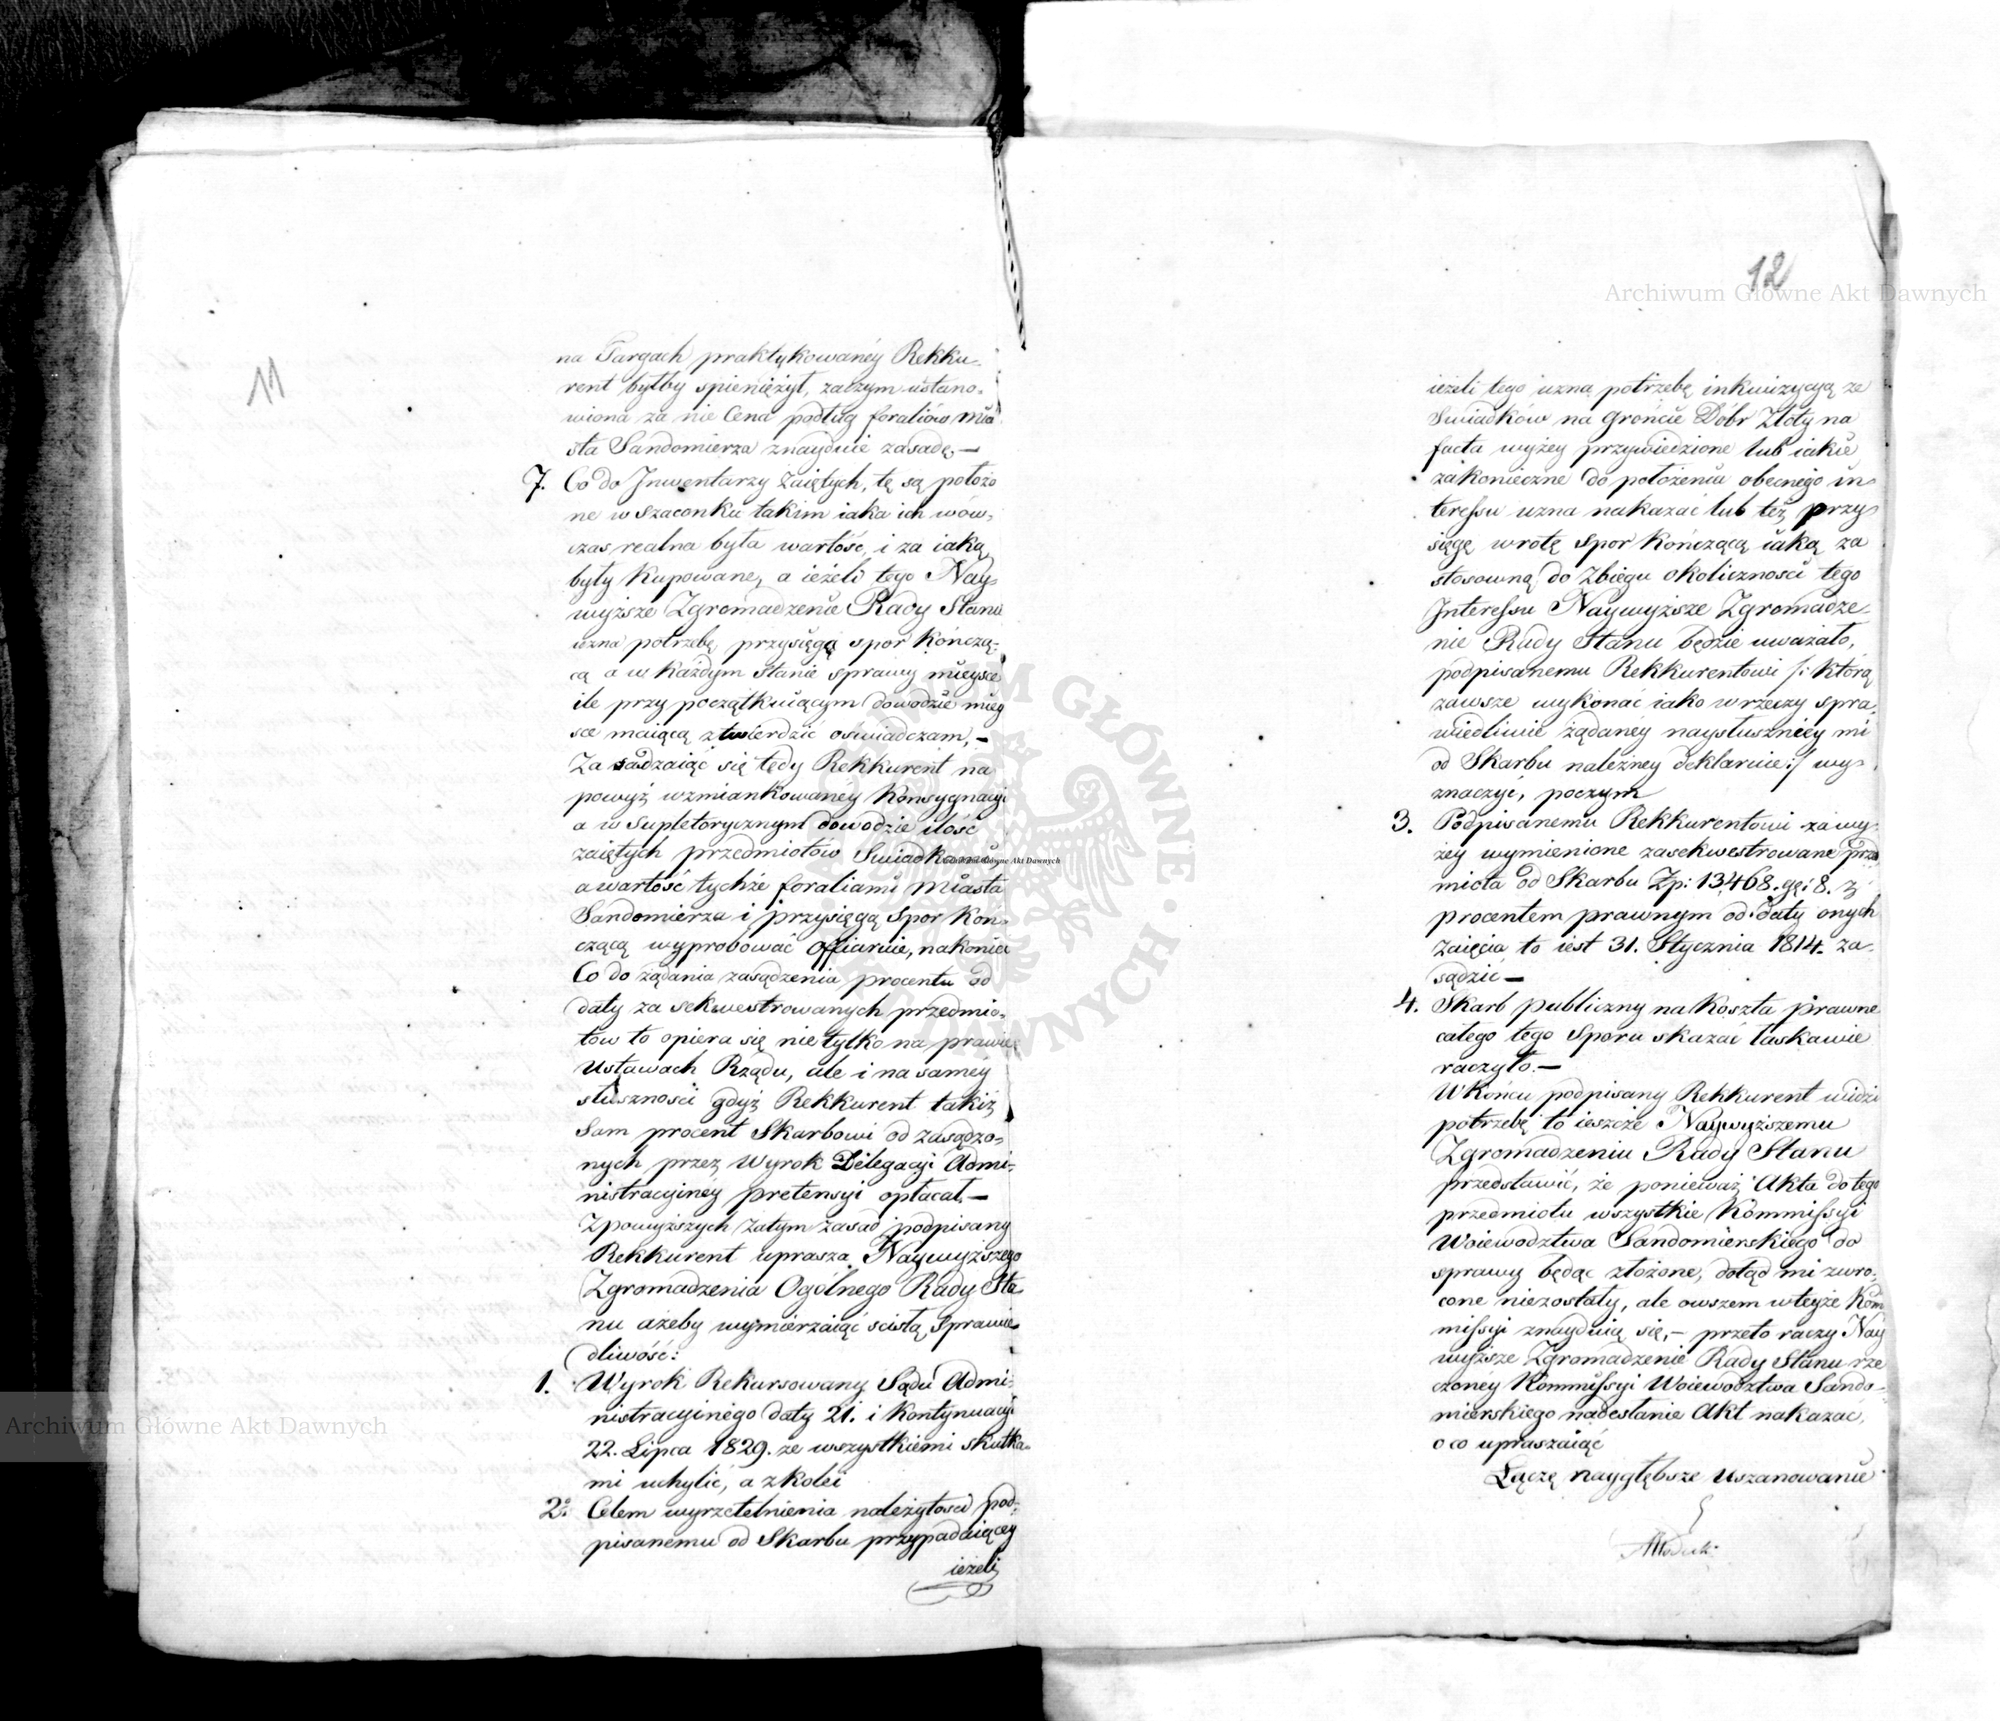 11
na Targach praktykowanéy Rekku-
rent byłby spieniężył, zaczym ustano-
wiona za nie Cena podług foraliów mia
sta Sandomierza znayduie zasadę,—
7. Co do Inwentarzy zaiętych, te są położo
ne w szacunku takim iaka ich wów,
czas realna była wartość, i za iaką
były kupowane, a ieżeli tego Nay-
wyższe Zgromadzenie Rady Stanu
uzna potrzebę, przysięgą spor kończą-
cą a w każdym Stanie sprawy mieysce
ile przy początkuiącym dowodzie miey
sce maiącą ztwierdzić oświadczam,—
Zasadzaiąc się tedy Rekkurent na
powyż wzmiankowanéy Konsygnacyi
a w Supletorycznym dowodzie ilość
zaiętych przedmiotów Swiadkami,
a wartość tychże foraliami Miasta
Sandomierza i przysięgą Spor koń-
czącą wyprobować offiaruie, nakoniec
Co do żądania zasądzenia procentu od
daty za sekwestrowanych przedmio-
tow to opiera się nie tylko na prawie
Ustawach Rządu, ale i na saméy
słuszności gdyż Rekkurent takiż
Sam procent Skarbowi od zasądzo-
nych przez Wyrok Delegacyi Admi-
nistracyinéy pretensyi opłacał,—
Z powyższych zatym zasad podpisany
Rekkurent uprasza Naywyższego
Zgromadzenia Ogólnego Rady Sta-
nu ażeby wymierzaiąc scisłą Sprawie-
dliwość:
1. Wyrok Rekursowany Sądu Admi-
nistracyinégo daty 21. i kontynuacyi
22. Lipca 1829. ze wszystkiemi skutka-
mi uchylić, a z kolei
2o: Celem wyrzetelnienia należytosci pod-
pisanemu od Skarbu przypadaiącey
ieżeli
12
ieżeli tego uzna potrzebę inkwizycyą ze
Swiadków na Grońcie Dóbr Złoty na
facta wyżey przywiedzione lub iakie
zakonieczne do położenia obecnego in-
teressu uzna nakazać lub też przy-
sięgę wrotę spor kończącą iaką za
stosowną do Zbiegu okoliczności tego
Interessu Naywyższe Zgromadze-
nie Rady Stanu będzie uważało,
podpisanemu Rekkurentowi /: którą
zawsze wykonać iako w rzeczy spra-
wiedliwie żądanéy naysłuszniéy mi
od Skarbu należney deklaruie :/ wy-
znaczyć, poczym
3. Podpisanemu Rekkurentowi za wy-
żey wymienione zasekwestrowane prze
miota od Skarbu Zp: 13,468. gr: 8. z
procentem prawnym od daty onych
Zaięcia to iest 31. Stycznia 1814. za-
sądzić—
4. Skarb publiczny na Koszta prawne
całego tego Sporu skazać łaskawie
raczyło.—
W końcu podpisany Rekkurent widzi
potrzebę to ieszcze Naywyższemu
Zgromadzeniu Rady Stanu
przedstawić, że ponieważ Akta do tego
przedmiotu wszystkie Kommissyi
Woiewodztwa Sandomierskiego do
sprawy będąc złożone, dotąd mi zwro-
cone niezostały, ale owszem w teyże Kom
missyi znayduią się,— przeto raczy Nay
wyższe Zgromadzenie Rady Stanu rze
czonéy Kommissyi Woiewodztwa Sando-
mierskiego nadesłanie Akt nakazać,
o co upraszaiąc
Łączę naygłębsze uszanowanie
Archiwum Główne Akt Dawnych
Archiwum Główne Akt Dawnych
ARCHIWUM GŁÓWNE
AKT DAWNYCH